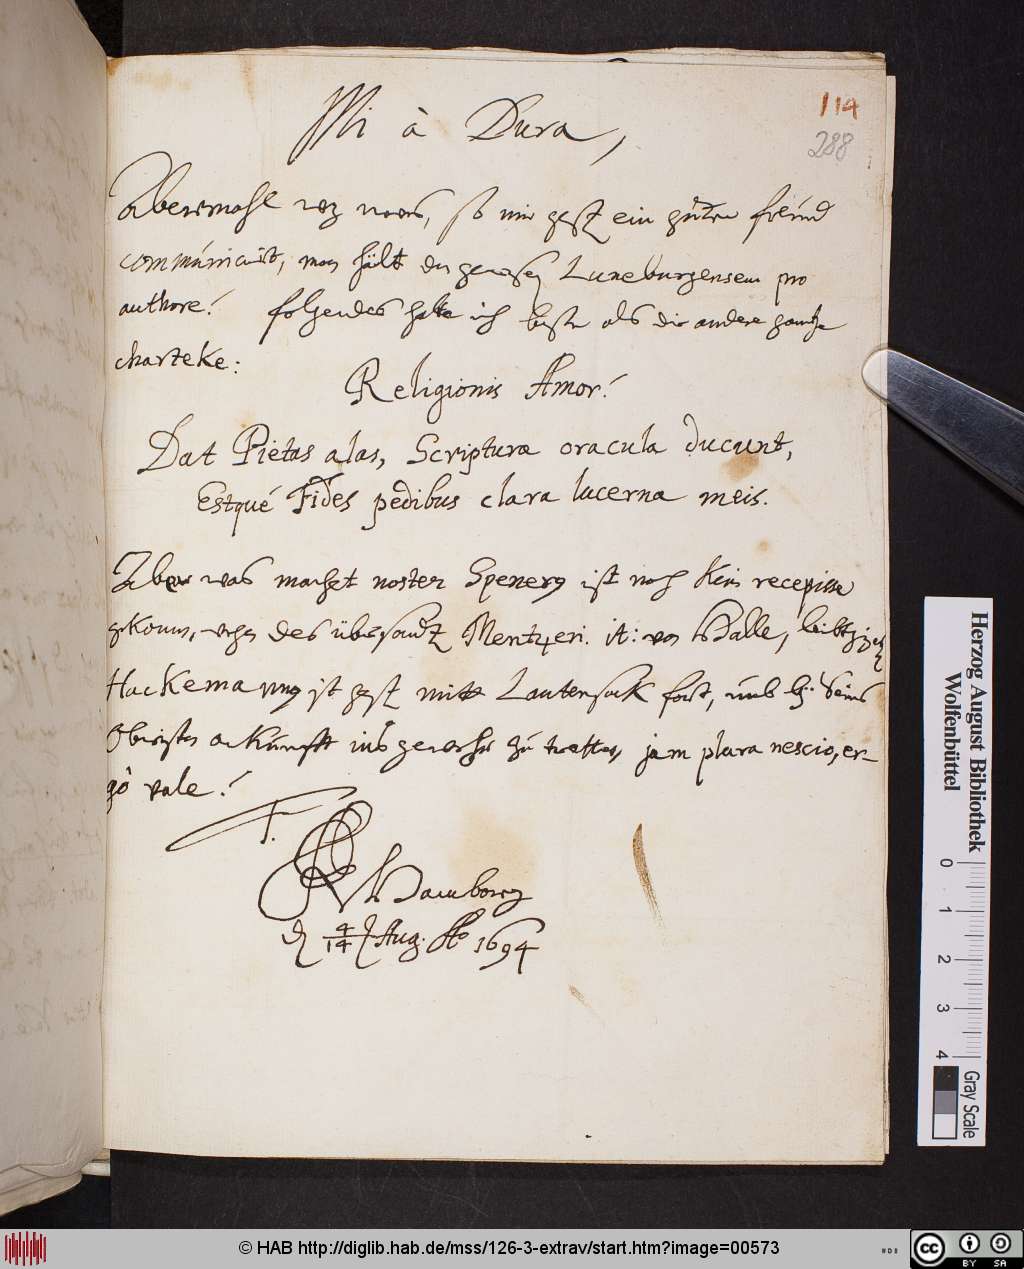 114
288
Mi à Dura,
Abermahl was neues, so mir gest ein guter freund
communicirt, man hält den Luneburgensem pro
authore! folgendes halte ich beste als die andere gantze
charteke:
Religionis Amor!
Dat Pietas alas, Scripturæ oracula ducunt,
Estqué Fides pedibus clara lucerna meis.
Aber was machet noster Spenerg ist noch kein recepisse
gekomm, des Mentzeri. it: von Halle,
Hackemanng ist gest mitt Lautensack fort, umb
ankunfft ins gewehr zu tretten, jam plura nescio, er-
gò vale!
T.
Hamborg
d 4/14 Aug. Ao 1694
Herzog August Bibliothek
Wolfenbüttel
0 1 2 3 4
Gray Scale
© HAB http://diglib.hab.de/mss/126-3-extrav/start.htm?image=00573
cc BY SA